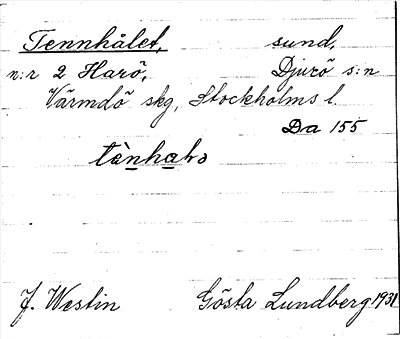 Tennhålet, sund,
n:r 2 Harö, Djurö s:n
Värmdö skg, Stockholms l.
Da 155
J. Westin Gösta Lundberg 1931